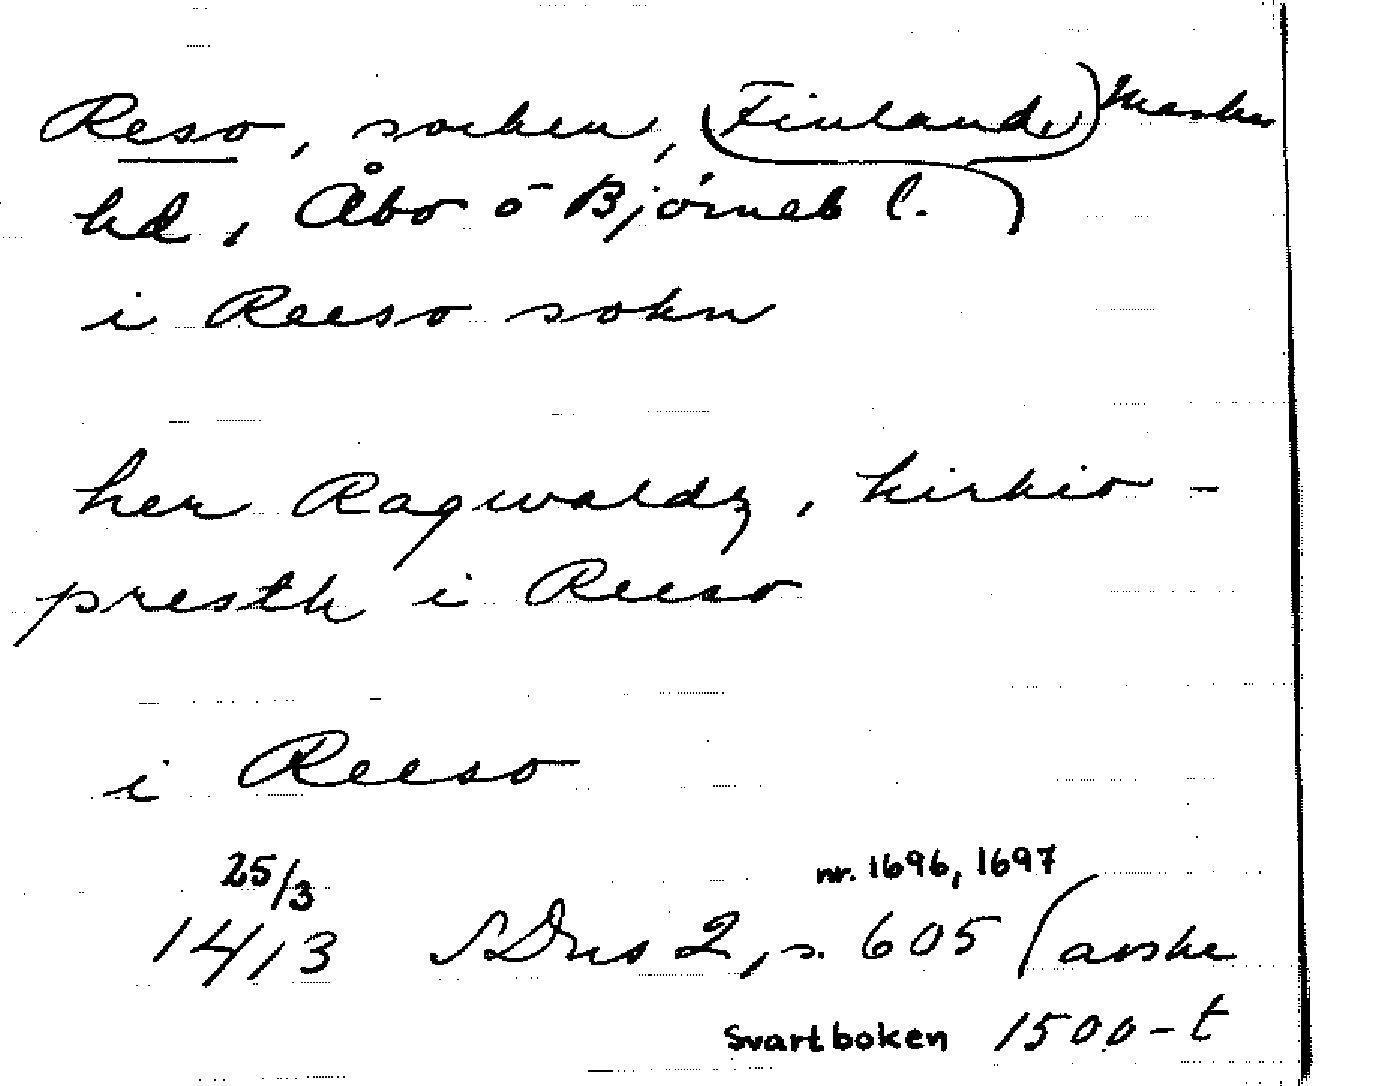 Reso, socken, (Finland,) Masku
hd, Åbo o Björneb l.)
i Reeso sokn
her Ragwaldz, kirkio-
presth i Reeso
i Reeso
25/3 nr. 1696, 1697
1413 SDns 2, s. 605 (avskr
Svartboken 1500-t